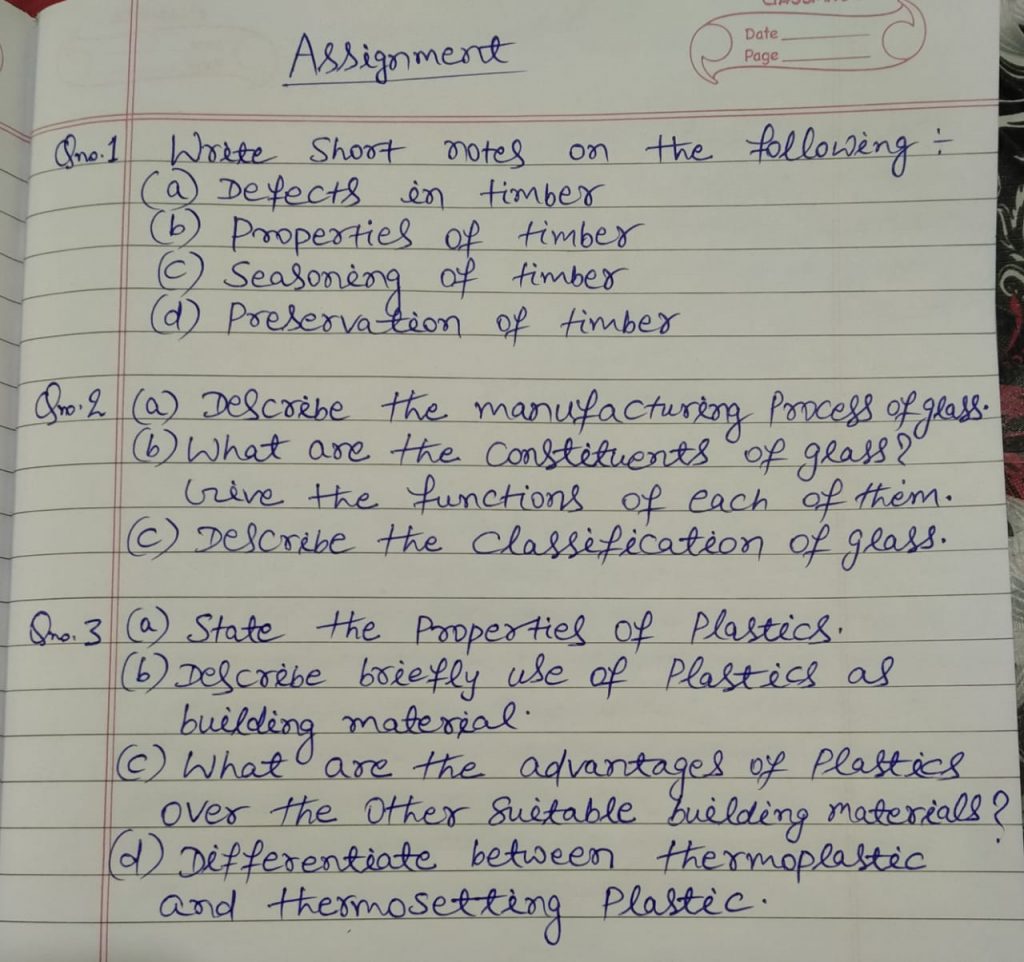 Assignment
Date
Page
Qno.1 Write Short notes on the following :-
(a) Defects in timber
(b) Properties of timber
(c) Seasoning of timber
(d) Preservation of timber
Qno.2 (a) Describe the manufacturing Process of glass.
(b) What are the constituents of glass?
Give the functions of each of them.
(c) Describe the classification of glass.
Qno.3 (a) State the Properties of Plastics.
(b) Describe briefly use of Plastics as
building material.
(c) What are the advantages of Plastics
over the Other Suitable building materials?
(d) Differentiate between thermoplastic
and thermosetting Plastic.